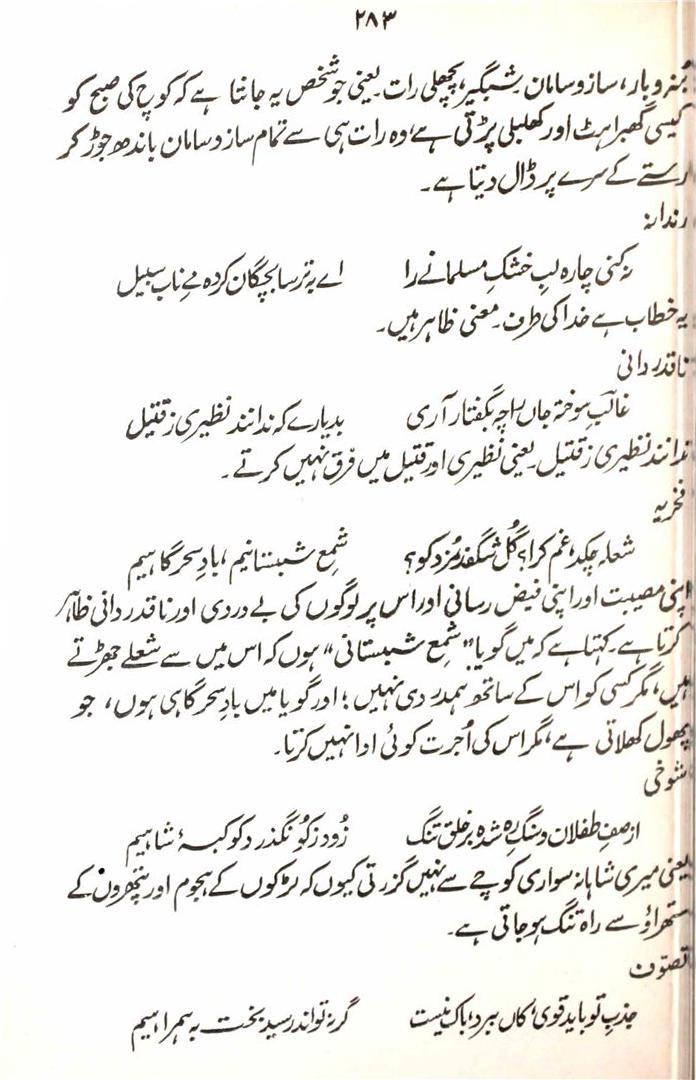 ۲۸۳
بُنہ و بار، ساز و سامان۔ شبگیر، پچھلی رات۔ یعنی جو شخص یہ جانتا ہے کہ کوچ کی صبح کو
کیسی گھبراہٹ اور کھلبلی پڑتی ہے، وہ رات ہی سے تمام ساز و سامان باندھ جوڑ کر
رستے کے سرے پر ڈال دیتا ہے۔
رندانہ
نہ کنی چارہ لبِ خشکِ مسلمانے را اے بہ ترسابچگاں کردہ مے ناب سبیل
یہ خطاب ہے خدا کی طرف۔ معنی ظاہر ہیں۔
ناقدردانی
غالبِ سوختہ جاں را چہ بگفتار آری بدیارے کہ ندانند نظیری ز قتیل
ندانند نظیری ز قتیل۔ یعنی نظیری اور قتیل میں فرق نہیں کرتے۔
فخریہ
شعلہ چکد، غم کرا؟ گُل شگفد، مُزد کو؟ شمعِ شبستانیم، بادِ سحرگاہیم
اپنی مصیبت اور اپنی فیض رسانی اور اس پر لوگوں کی بے دردی اور ناقدردانی ظاہر
کرتا ہے۔ کہتا ہے کہ میں گویا "شمعِ شبستانی" ہوں کہ اس میں سے شعلے جھڑتے
ہیں، مگر کسی کو اس کے ساتھ ہمدردی نہیں؛ اور گویا میں بادِ سحرگاہی ہوں، جو
پھول کھلاتی ہے، مگر اس کی اُجرت کوئی ادا نہیں کرتا۔
شوخی
از صفِ طفلان و سنگ رہ شدہ بر خلق تنگ زُود ز کُو نگذرد کوکبۂ شاہیم
یعنی میری شاہانہ سواری کوچے سے نہیں گزرتی کیوں کہ لڑکوں کے ہجوم اور پتھروں کے
ستھراؤ سے راہ تنگ ہو جاتی ہے۔
تصوّف
جذبِ تو باید قوی، کاں ببرد، باک نیست گر نہ تواند رسید بخت بہ ہمراہیم